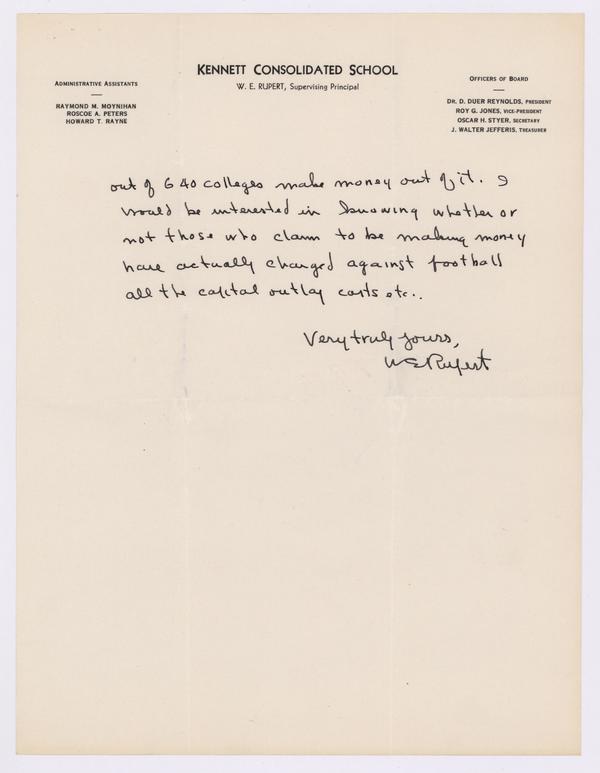 KENNETT CONSOLIDATED SCHOOL
W. E. RUPERT, Supervising Principal
ADMINISTRATIVE ASSISTANTS
RAYMOND M. MOYNIHAN
ROSCOE A. PETERS
HOWARD T. RAYNE
OFFICERS OF BOARD
DR. D. DUER REYNOLDS, PRESIDENT
ROY G. JONES, VICE-PRESIDENT
OSCAR H. STYER, SECRETARY
J. WALTER JEFFERIS, TREASURER
out of 640 colleges make money out of it. I
would be interested in knowing whether or
not those who claim to be making money
have actually charged against football
all the capital outlay costs etc..
Very truly yours,
W E Rupert